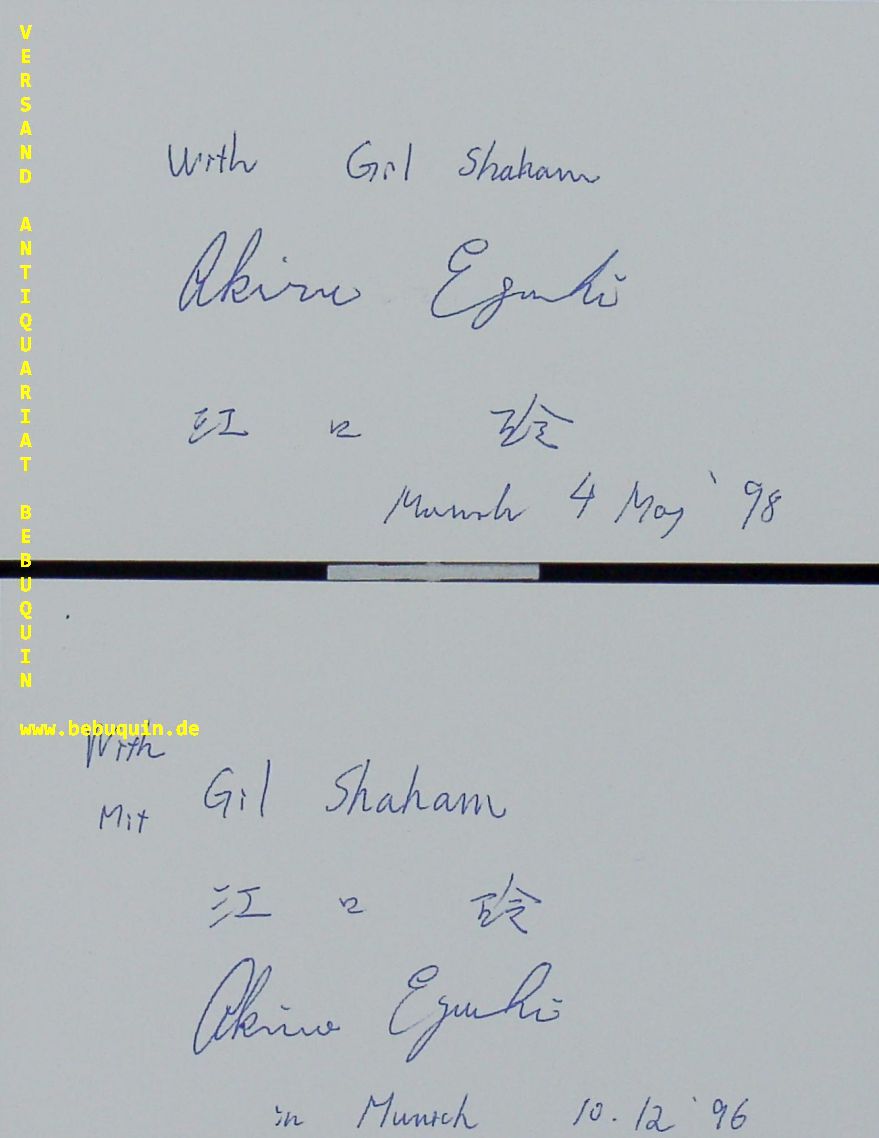 VERSAND ANTIQUARIAT BEBUQUIN
With Gil Shaham
Akira Eguchi
江 口 玲
Munich 4 May '98
www.bebuquin.de
With
Mit Gil Shaham
江 口 玲
Akira Eguchi
in Munich 10.12 '96